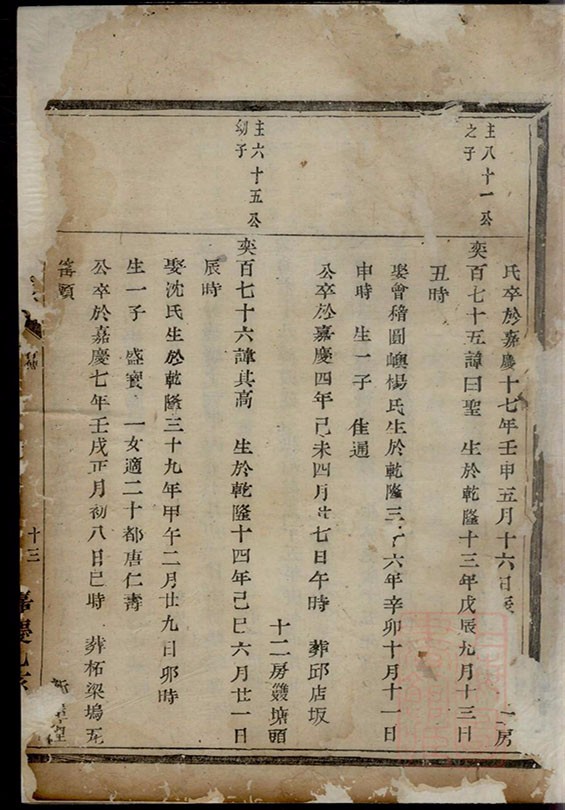 氏卒於嘉慶十七年壬申五月十六日辰
房
主八十一公
之子
奕百七十五諱曰聖 生於乾隆十三年戊辰九月十三日
丑時
娶會稽圖嶼楊氏生於乾隆三十六年辛卯十月十一日
申時 生一子 佳通
公卒於嘉慶四年己未四月廿七日午時 葬邱店坂
十二房雙塘頭
主六十五公
幼子
奕百七十六諱其高 生於乾隆十四年己巳六月廿一日
辰時
娶沈氏生於乾隆三十九年甲午二月廿九日卯時
生一子 盛寶 一女適二十都唐仁壽
公卒於嘉慶七年壬戌正月初八日巳時 葬柘梁塢
頭
十三